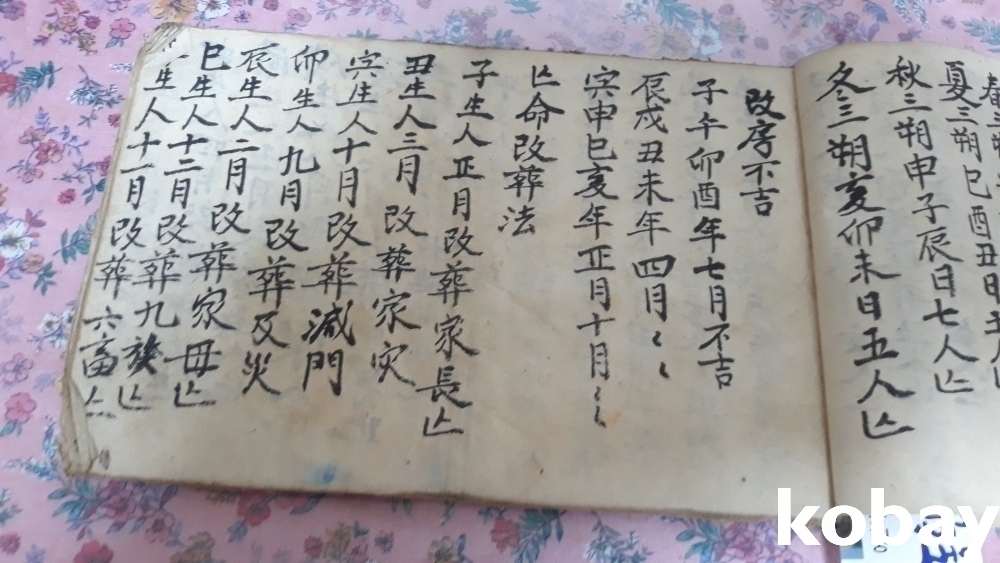 夏三朔巳酉丑日
秋三朔申子辰日七人亾
冬三朔亥卯未日五人亾
改序不吉
子午卯酉年七月不吉
辰戌丑未年四月〻〻
寅申巳亥年正月十月〻〻
亾命改葬法
子生人正月改葬家長亾
丑生人三月改葬家灾
寅生人十月改葬滅門
卯生人九月改葬及火
辰生人二月改葬家母亾
巳生人十二月改葬九族亾
生人十一月改葬六畜亾
kobay